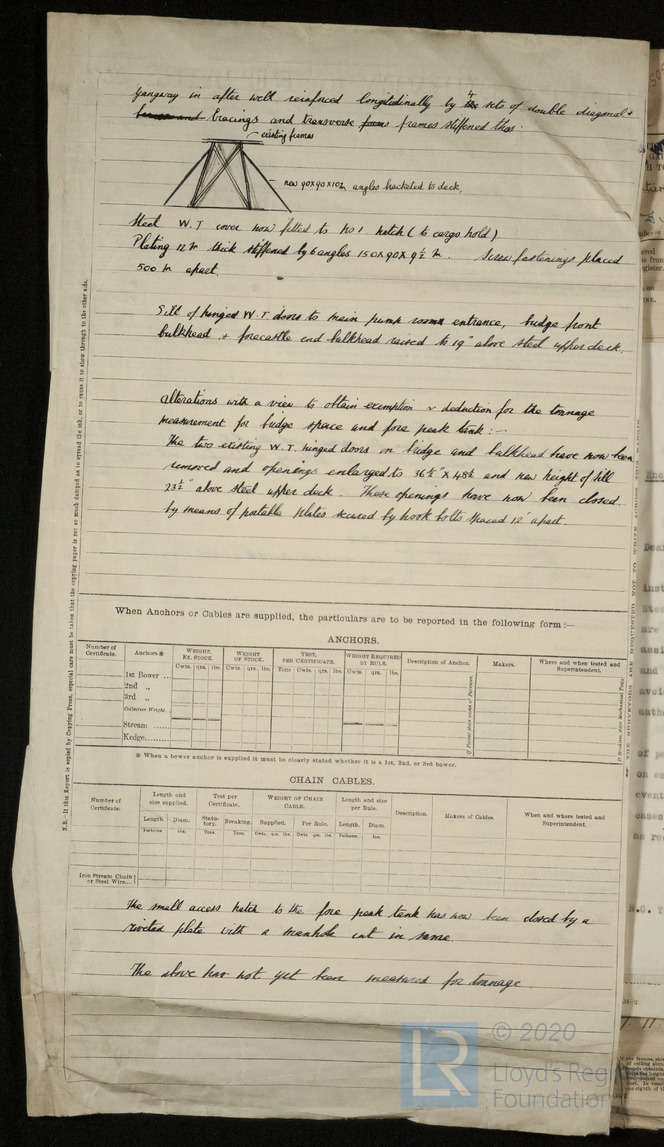 Gangway in after well reinforced longitudinally by 4 sets of double diagonal
bracings and transverse frames stiffened thus:
existing frames
new 90x90x10 m/m angles bracketed to deck.
Steel W.T cover now fitted to No 1 hatch (to cargo hold)
Plating 12 m/m thick stiffened by 6 angles 150x90x9½ m/m. Screw fastenings placed
500 m/m apart.
Sill of hinged W.T doors to main pump room entrance, bridge front
bulkhead + forecastle end bulkhead raised to 19" above steel upper deck.
Alterations with a view to obtain exemption & deduction for the tonnage
measurement for bridge space and fore peak tank:-
The two existing W.T. hinged doors on bridge end bulkhead have now been
removed and openings enlarged to 36½" x 48½ and new height of sill
23½" above steel upper deck. These openings have now been closed
by means of portable plates secured by hook bolts spaced 12" apart.
When Anchors or Cables are supplied, the particulars are to be reported in the following form:—
ANCHORS.
Number of Certificate. Anchors※ WEIGHT, EX. STOCK. WEIGHT OF STOCK. TEST, PER CERTIFICATE. WEIGHT REQUIRED BY RULE. Description of Anchor. Makers. Where and when tested and Superintendent.
Cwts. qrs. lbs. Cwts. qrs. lbs. Tons qrs. lbs. Cwts. qrs. lbs.
1st Bower ...
2nd „
3rd „
Collective Weight.
Stream ......
Kedge.........
※ When a bower anchor is supplied it must be clearly stated whether it is a 1st, 2nd, or 3rd bower.
CHAIN CABLES.
Number of Certificate. Length and size supplied. Test per Certificate. WEIGHT OF CHAIN CABLE. Length and size per Rule. Description. Makers of Cables. When and where tested and Superintendent.
Length. Diam. Statutory. Breaking. Supplied. Per Rule. Length. Diam.
Fathoms Ins. Tons. Tons. Cwts. qrs. lbs. Cwts. qrs. lbs. Fathoms. Ins.
Iron Stream Chain or Steel Wire...
The small access hatch to the fore peak tank has now been closed by a
riveted plate with a manhole cut in same.
The above has not yet been measured for tonnage.
N.B.—If this Report is copied by Copying Press, especial care must be taken that the copying paper is not so much damped as to spread the ink, or to cause it to show through to the other side.
LR
© 2020
Lloyd's Regi
Foundation